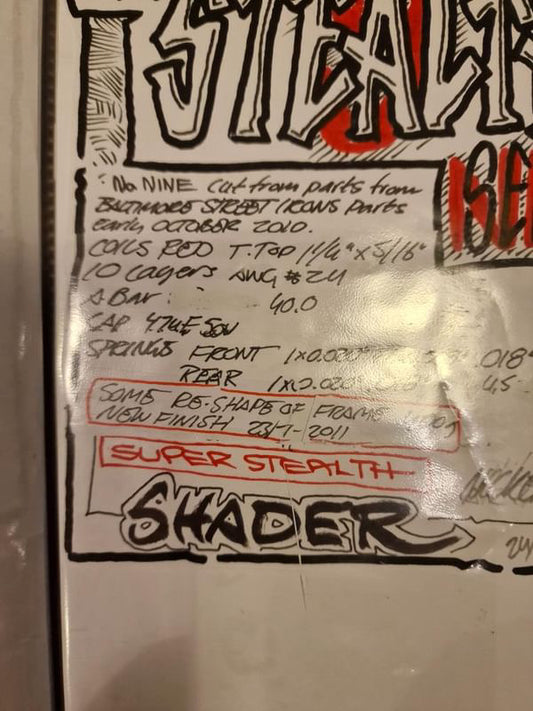 STEALTH
"No NINE Cut from parts from
BALTIMORE STREET IRONS Parts
early OCTOBER 2010.
COILS RED T.TOP 1 1/4" x 5/16"
10 Layers AWG #24
A Bar: 40.0
CAP 47uF 50V
SPRINGS FRONT 1x0.020" .018"
REAR 1x0.020"
SOME RE-SHAPE OF FRAME
NEW FINISH 23/7-2011
SUPER STEALTH
SHADER